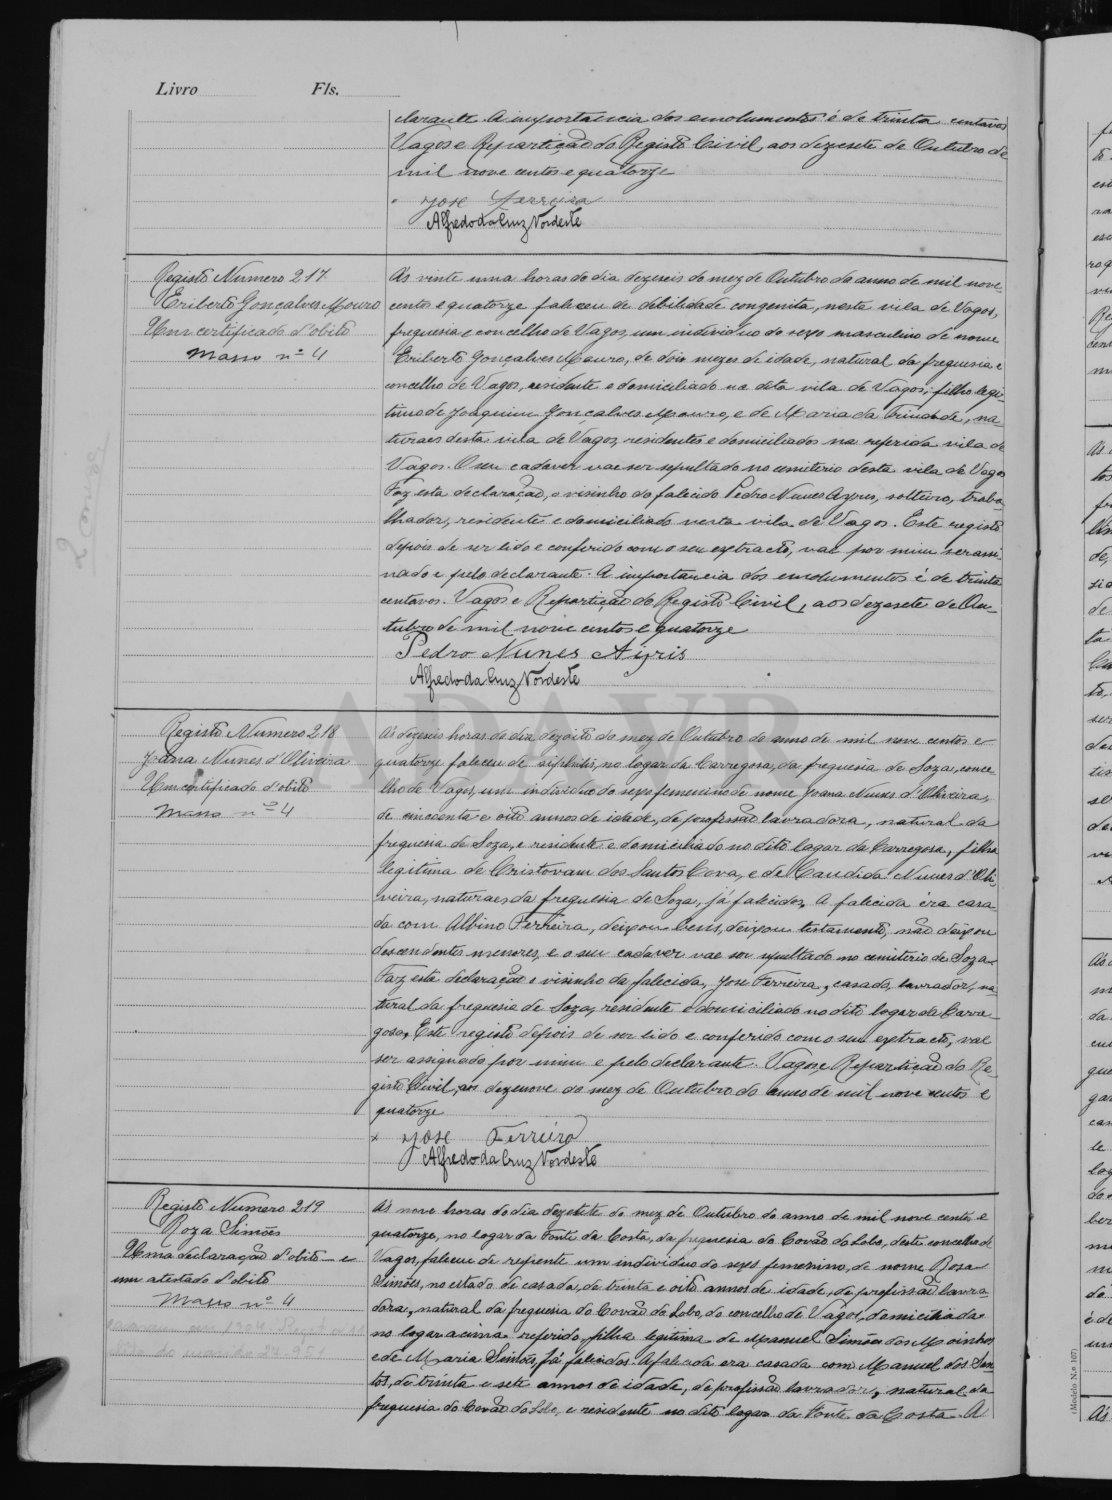 Livro Fls.
clarante. A importancia dos emolumentos é de trinta centavos
Vagos e Repartição do Registo Civil, aos dezesete de Outubro de
mil nove centos e quatorze
José Ferreira
Alfredo da Cruz Nordeste
Registo Numero 217
Eriberto Gonçalves Mouro
Um certificado d'obito
Masso nº 4
Ás vinte uma horas do dia dezeseis do mez de Outubro do anno de mil nove
centos e quatorze faleceu de debilidade congenita, nesta vila de Vagos,
freguesia e concelho de Vagos, um individuo do sexo masculino de nome
Eriberto Gonçalves Mouro, de dois mezes de idade, natural da freguesia e
concelho de Vagos, residente e domiciliado na dita vila de Vagos, filho legi-
timo de Joaquim Gonçalves Mouro, e de Maria da Trindade, na-
turaes desta vila de Vagos, residentes e domiciliados na referida vila de
Vagos. O seu cadaver vae ser sepultado no cemiterio desta vila de Vagos
Faz esta declaração, o visinho do falecido Pedro Nunes Ayres, solteiro, traba-
lhador, residente e domiciliado nesta vila de Vagos. Este registo
depois de ser lido e conferido com o seu extracto, vae por mim ser assi-
nado e pelo declarante. A importancia dos emolumentos é de trinta
centavos. Vagos e Repartição do Registo Civil, aos dezesete de Ou-
tubro de mil nove centos e quatorze
Pedro Nunes Ayris
Alfredo da Cruz Nordeste
ADAVR
Registo Numero 218
Joana Nunes d'Oliveira
Um certificado d'obito
Masso nº 4
Ás dezeseis horas do dia dezoito do mez de Outubro do anno de mil nove centos e
quatorze faleceu de siphilis, no logar da Carregosa, da freguesia de Soza, conce-
lho de Vagos, um individuo do sexo femenino de nome Joana Nunes d'Oliveira,
de cincoenta e oito annos de idade, de profissão lavradora, natural da
freguesia de Soza, e residente e domiciliado no dito logar da Carregosa, filha
legitima de Cristovam dos Santos Cova, e de Candida Nunes d'Oli-
veira, naturaes da freguesia de Soza, já falecidos. A falecida era casa-
da com Albino Ferreira, deixou bens, deixou testamento, não deixou
descendentes menores, e o seu cadaver vae ser sepultado no cemiterio de Soza.
Faz esta declaração o visinho da falecida, José Ferreira, casado, lavrador, na-
tural da freguesia de Soza, residente e domiciliado no dito logar da Carre-
gosa. Este registo depois de ser lido e conferido com o seu extracto, vae
ser assignado por mim e pelo declarante. Vagos e Repartição do Re-
gisto Civil, aos dezenove do mez de Outubro do anno de mil nove centos e
quatorze
x José Ferreira
Alfredo da Cruz Nordeste
Registo Numero 219
Roza Simões
Uma declaração d'obito e
um atestado d'obito
Masso nº 4
Ás nove horas do dia dezesete do mez de Outubro do anno de mil nove centos e
quatorze, no logar da Fonte da Costa, da freguesia do Covão do Lobo, deste concelho de
Vagos, faleceu de repente um individuo do sexo femenino, de nome Rosa
Simões, no estado de casada, de trinta e oito annos de idade, de profissão lavra-
dora, natural da freguesia do Covão do Lobo, do concelho de Vagos, domiciliada
no logar acima referido, filha legitima de Manuel Simões dos Moinhos
e de Maria Simões, já falecidos. A falecida era casada com Manuel dos San-
tos, de trinta e sete annos de idade, de profissão lavrador, natural da
freguesia do Covão do Lobo, e residente no dito logar da Fonte da Costa. A
(Modelo N.º 107)